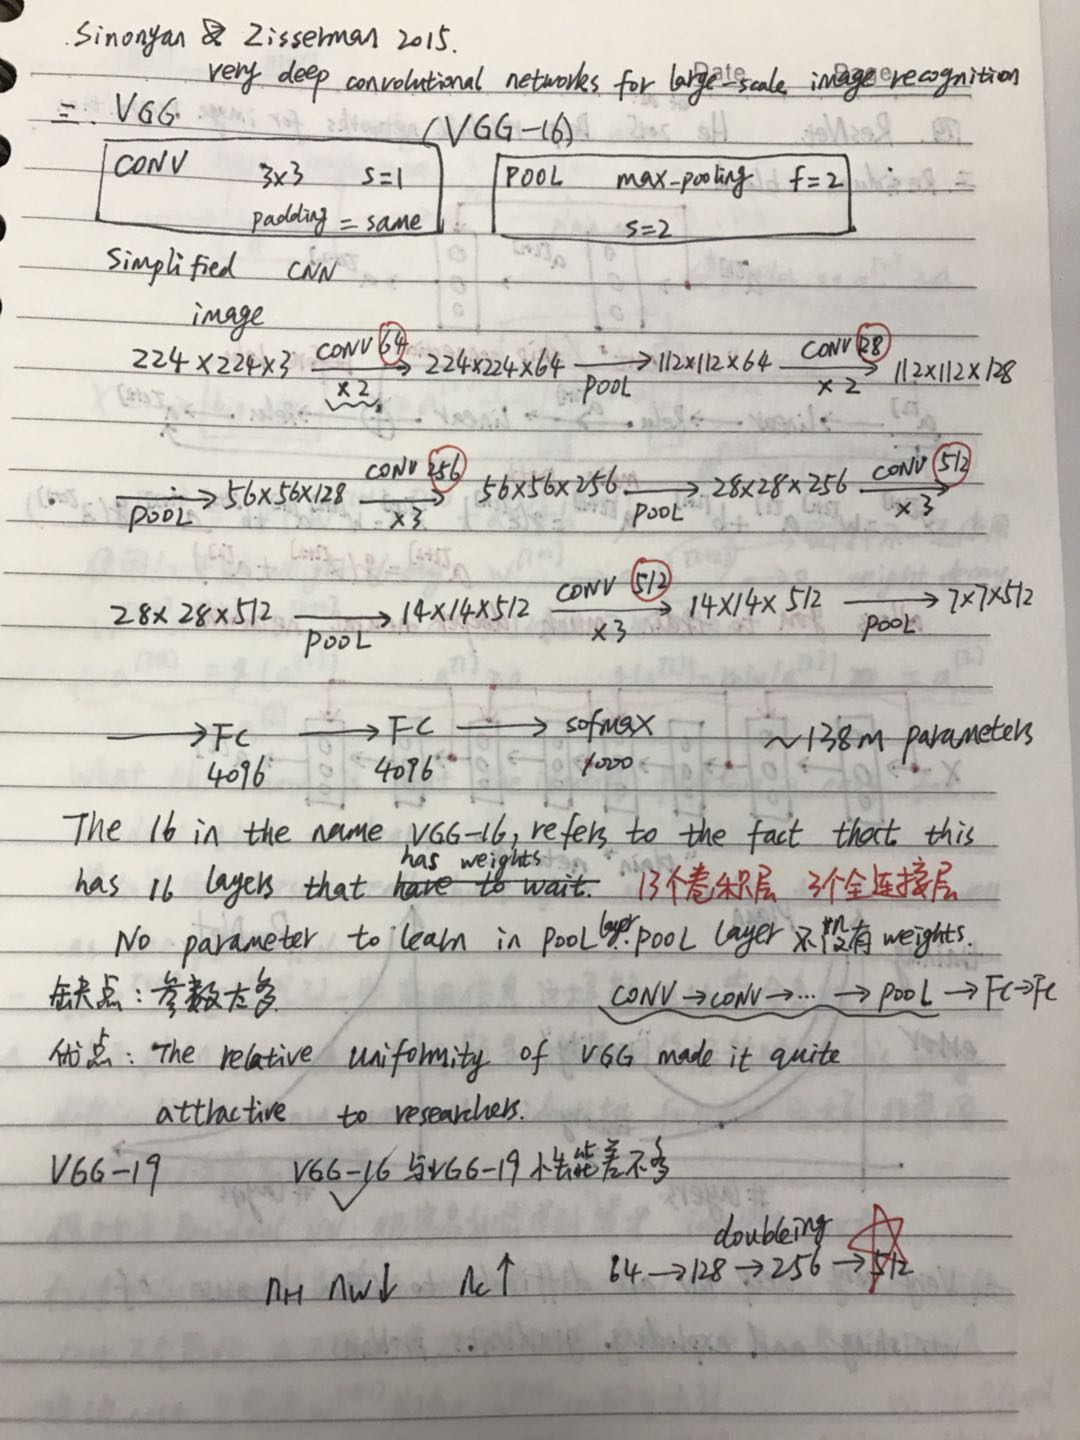 Sinonyan & Zisserman 2015.
very deep convolutional networks for large-scale image recognition
二. VGG (VGG-16)
CONV 3×3 s=1
padding = same
POOL max-pooling f=2
s=2
Simplified CNN
image
224×224×3 CONV 64 ×2 → 224×224×64 → POOL 112×112×64 CONV 128 ×2 → 112×112×128
→ POOL 56×56×128 CONV 256 ×3 → 56×56×256 → POOL 28×28×256 CONV 512 ×3 →
28×28×512 → POOL 14×14×512 CONV 512 ×3 → 14×14×512 → POOL 7×7×512
→ FC 4096 → FC 4096 → sofmax 1000 ~138M parameters
The 16 in the name VGG-16, refers to the fact that this
has 16 layers that have to wait. has weights 13个卷积层 3个全连接层
No parameter to learn in POOL layer. POOL layer 没有 weights.
缺点: 参数太多 CONV→CONV→...→POOL→FC→FC
优点: The relative uniformity of VGG made it quite
attractive to researchers.
VGG-19 VGG-16 与VGG-19 性能差不多
doubleing
nH nW↓ nc↑ 64→128→256→512